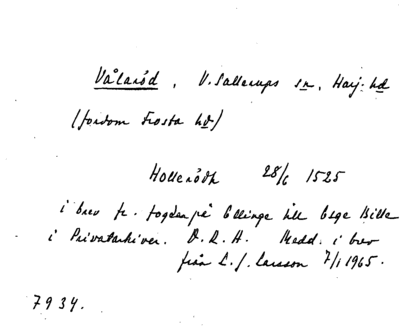 Vålaröd, V. Sallerups sn, Harj. hd
(fordom Frosta hd)
Hollerödh 28/6 1525
i brev fr. fogden på Ellinge till Eske Bille
i Privatarkiver. D.R.A. Medd. i brev
från L. J. Larsson 7/1 1965.
7934.